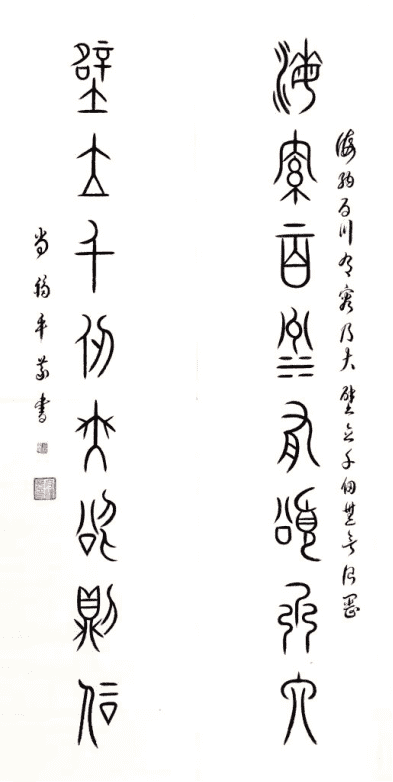 海納百川有容乃大壁立千仞無欲則剛
海納百川有容乃大
壁立千仞无欲則剛
尚平敬書